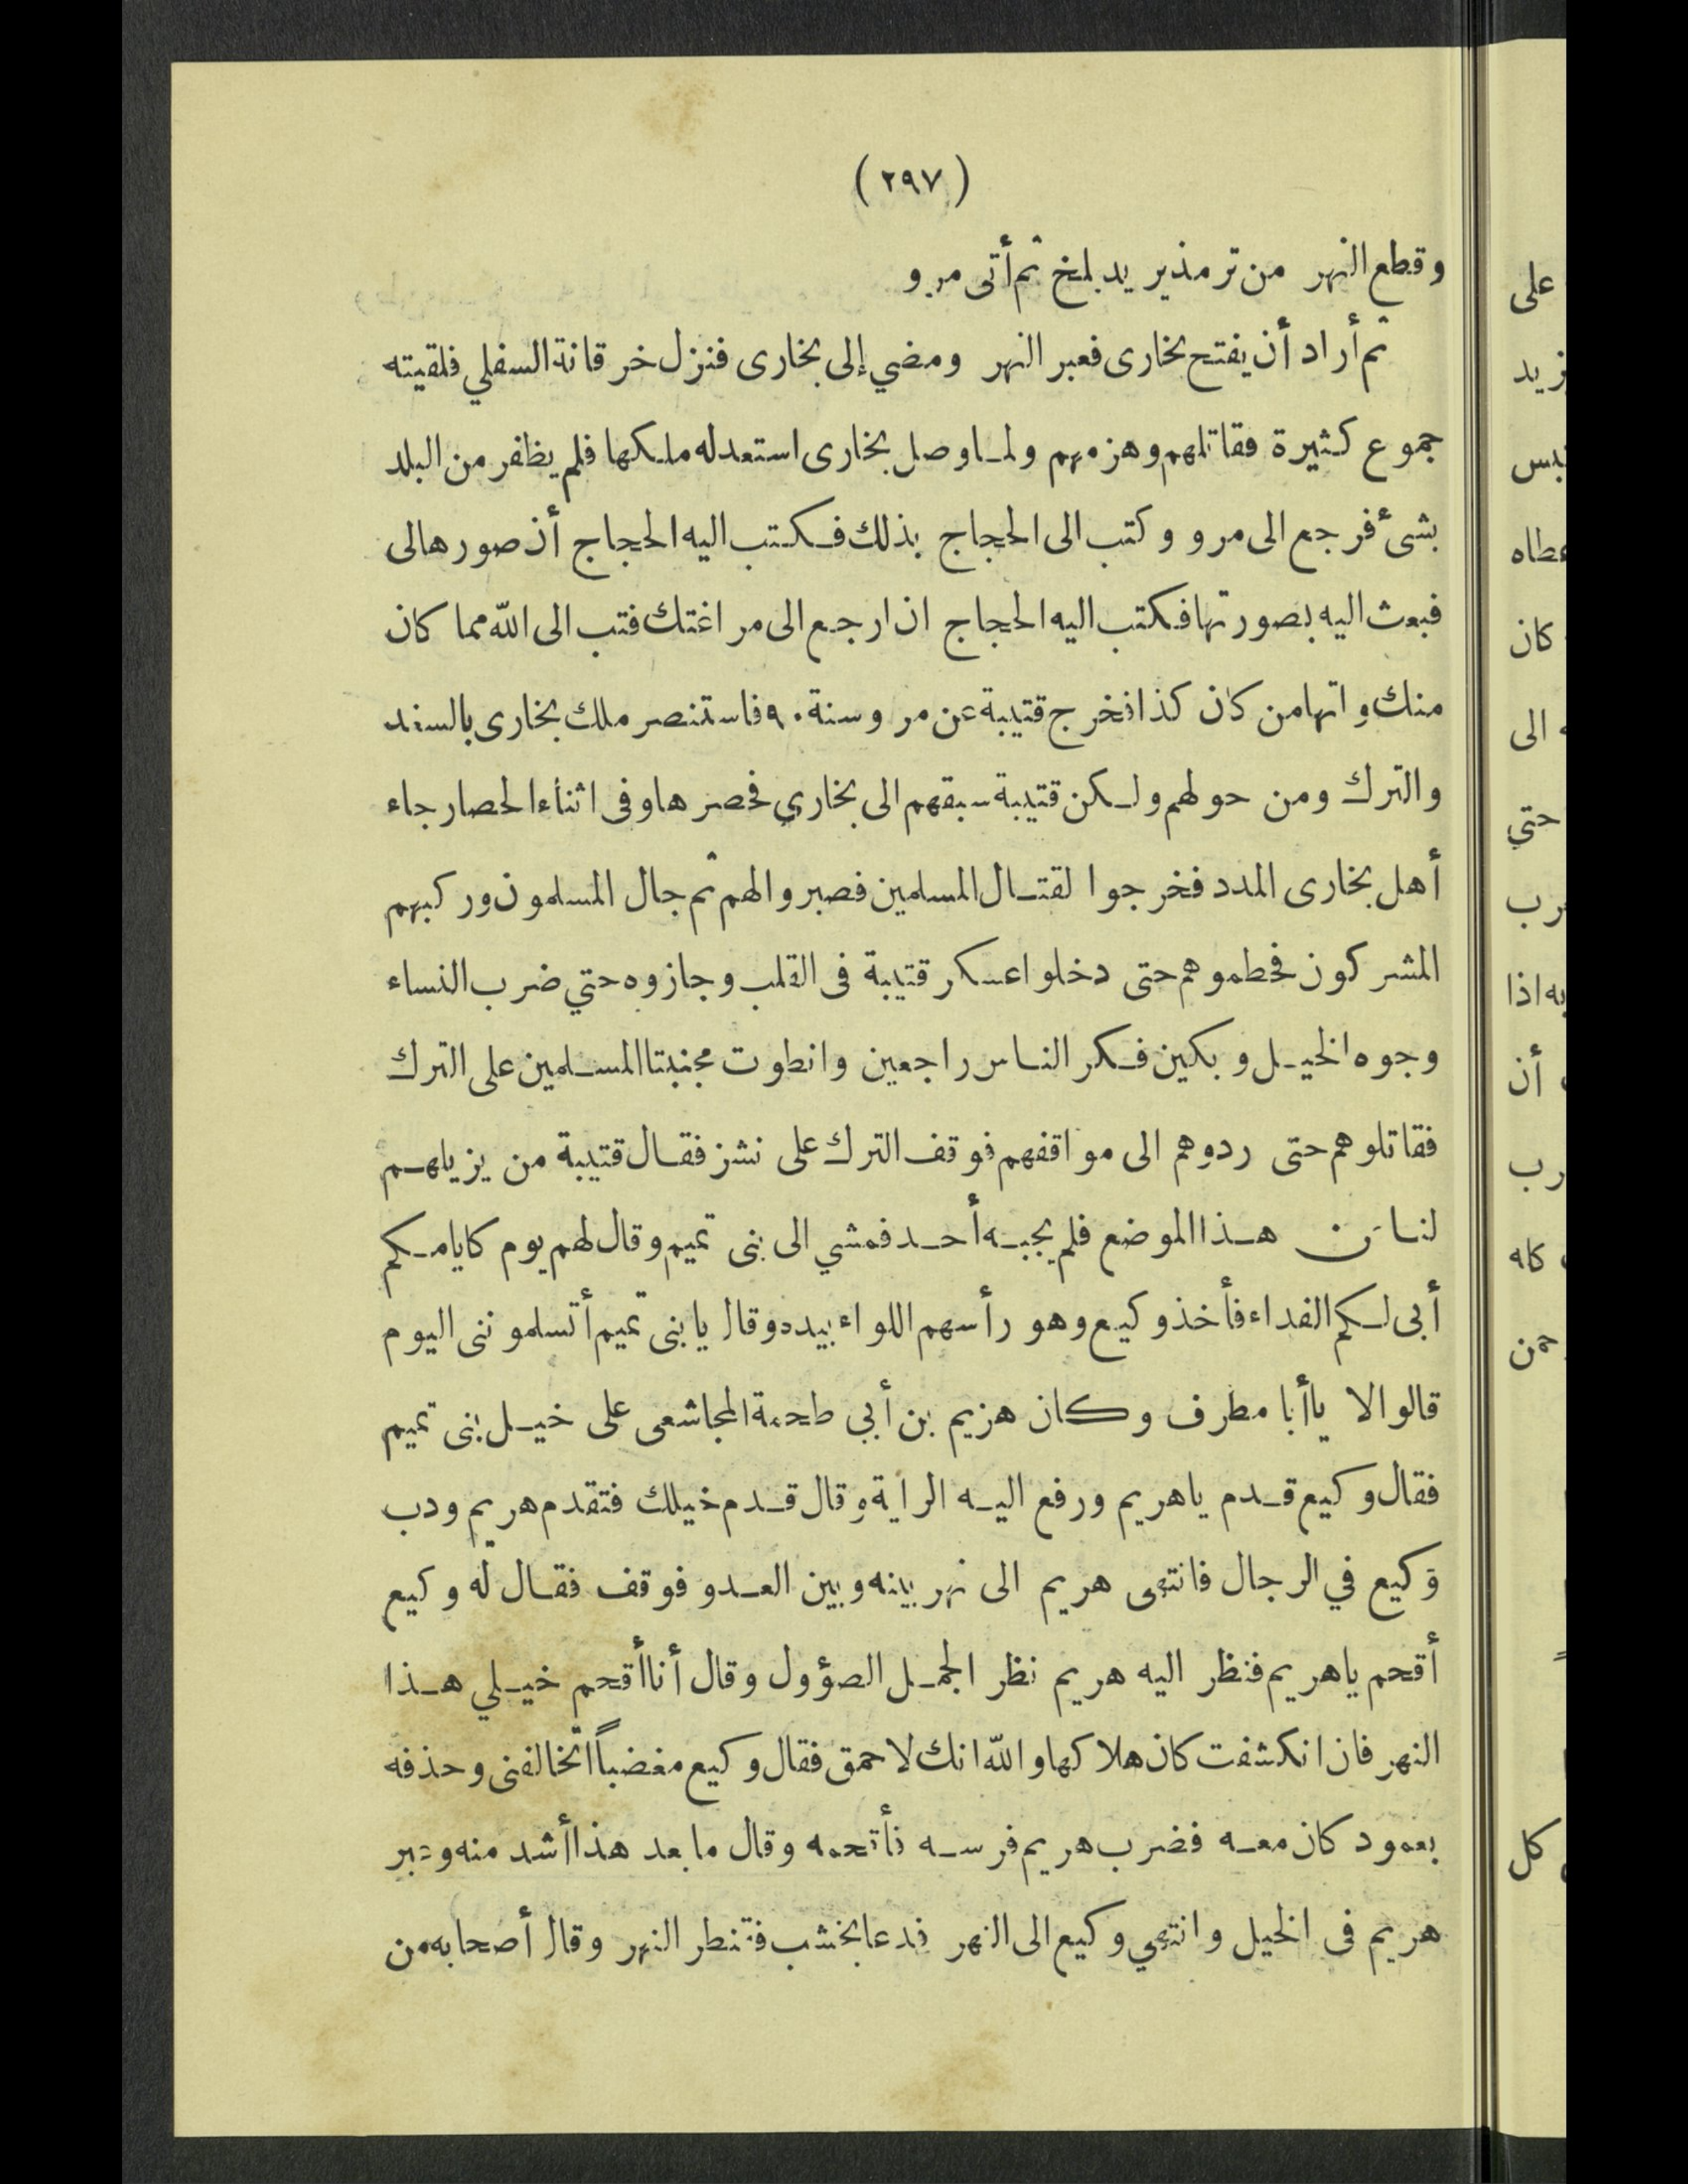 (٢٩٧)
وقطع النهر من ترمذ يريد بلخ ثم أتى مرو
ثم أراد أن يفتح بخارى فعبر النهر ومضي إلى بخارى فنزل خرقانة السفلي فلقيته
جموع كثيرة فقاتلهم وهزمهم ولما وصل بخارى استعد له ملكها فلم يظفر من البلد
بشئ فرجع الى مرو وكتب الى الحجاج بذلك فكتب اليه الحجاج أن صورها لى
فبعث اليه بصورتها فكتب اليه الحجاج ان ارجع الى مراغتك فتب الى الله مما كان
منك واتها من كان كذا فخرج قتيبة عن مرو سنة ٩٠ فاستنصر ملك بخارى بالسند
والترك ومن حولهم ولكن قتيبة سبقهم الى بخاري فحصرها وفى اثناء الحصار جاء
أهل بخارى المدد فخرجوا لقتال المسلمين فصبروا لهم ثم جال المسلمون وركبهم
المشركون فحطموهم حتى دخلوا عسكر قتيبة فى القلب وجازوه حتي ضرب النساء
وجوه الخيل وبكين فكر الناس راجعين وانطوت مجنبتا المسلمين على الترك
فقاتلوهم حتى ردوهم الى مواقفهم فوقف الترك على نشز فقال قتيبة من يزيلهم
لنا من هذا الموضع فلم يجبه أحد فمشي الى بنى تميم وقال لهم يوم كايامكم
أبى لكم الفداء فأخذ وكيع وهو رأسهم اللواء بيده وقال يا بنى تميم أتسلموننى اليوم
قالوا لا يا أبا مطرف وكان هزيم بن أبي طحمة المجاشعى على خيل بنى تميم
فقال وكيع قدم ياهريم ورفع اليه الراية وقال قدم خيلك فتقدم هريم ودب
وكيع في الرجال فانتهى هريم الى نهر بينه وبين العدو فوقف فقال له وكيع
أقحم ياهريم فنظر اليه هريم نظر الجمل الصؤول وقال أنا أقحم خيلي هذا
النهر فان انكشفت كان هلاكها والله انك لاحمق فقال وكيع مغضباً اتخالفنى وحذفه
بعمود كان معه فضرب هريم فرسه فأقحمه وقال ما بعد هذا أشد منه وعبر
هريم فى الخيل وانتهي وكيع الى النهر فدعا بخشب فقنطر النهر وقال أصحابه من
على
زيد
عطاه
كان
الى
حتي
رب
به اذا
أن
رب
كاه
كل